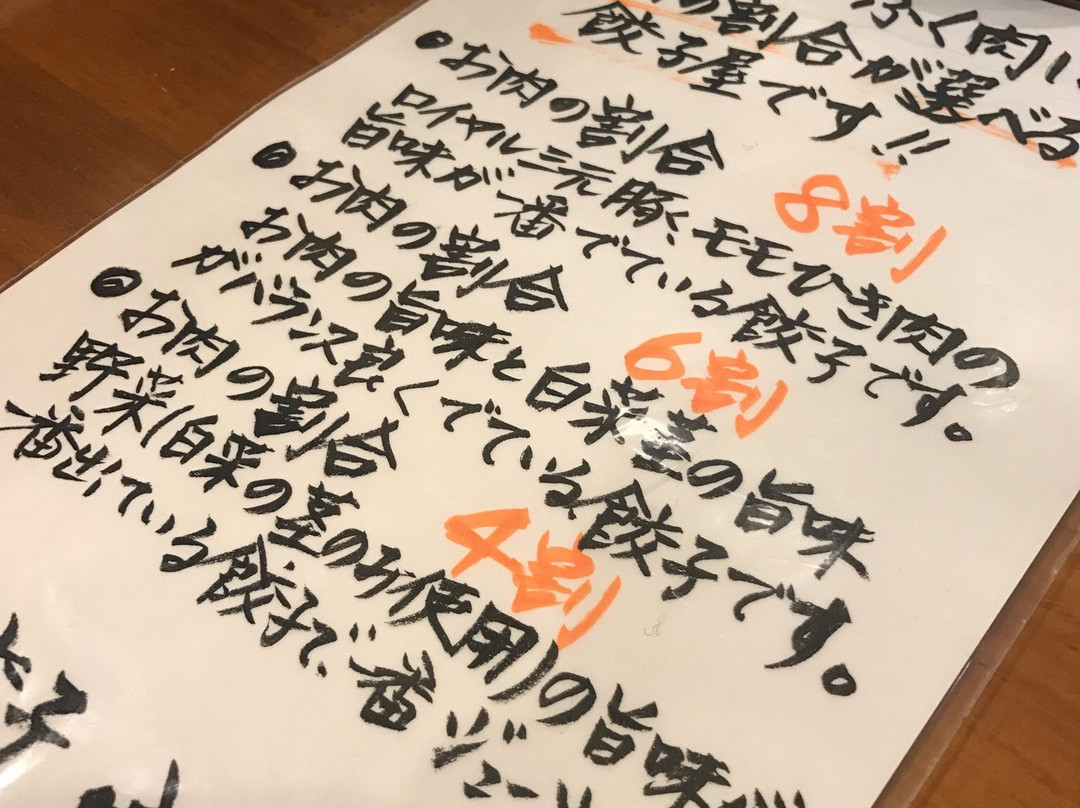 ふく肉い
の割合が選べる
餃子屋です!!
●お肉の割合 8割
ロイヤル三元豚、モモひき肉の
旨味が一番でている餃子です。
●お肉の割合 6割
お肉の旨味と白菜茎の旨味
がバランス良くでている餃子です。
●お肉の割合 4割
野菜(白菜の茎のみ使用)の旨味が
一番出ている餃子で、一番ジュー